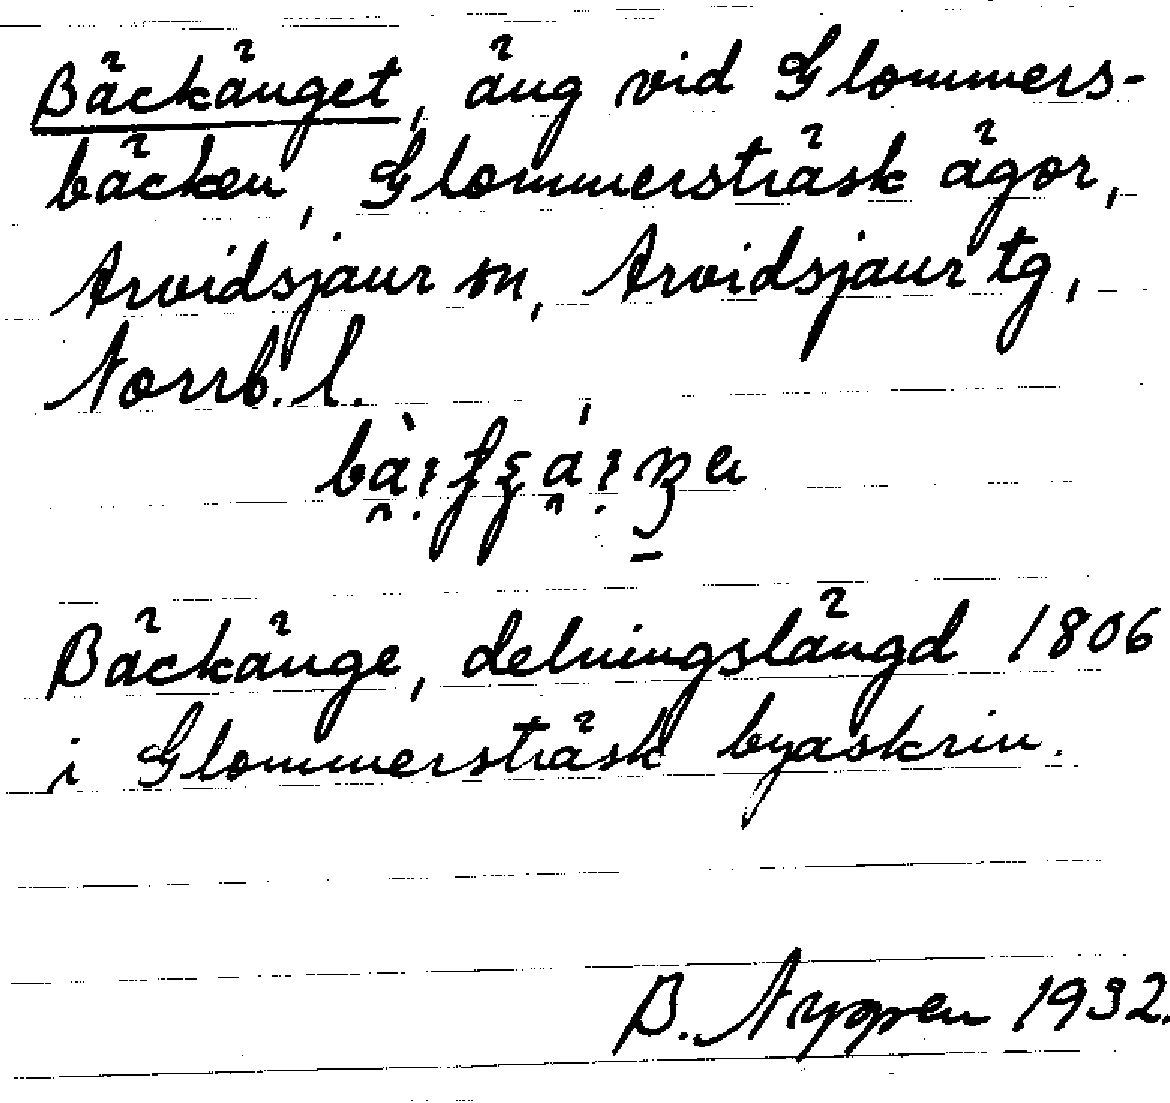 Bäckänget, äng vid Glommers-
bäcken, Glommersträsk ägor,
Arvidsjaur sn, Arvidsjaur tg,
Norrb. l.
Bäckänge, delningslängd 1806
i Glommersträsk byaskrin.
B. Nyppen 1932.